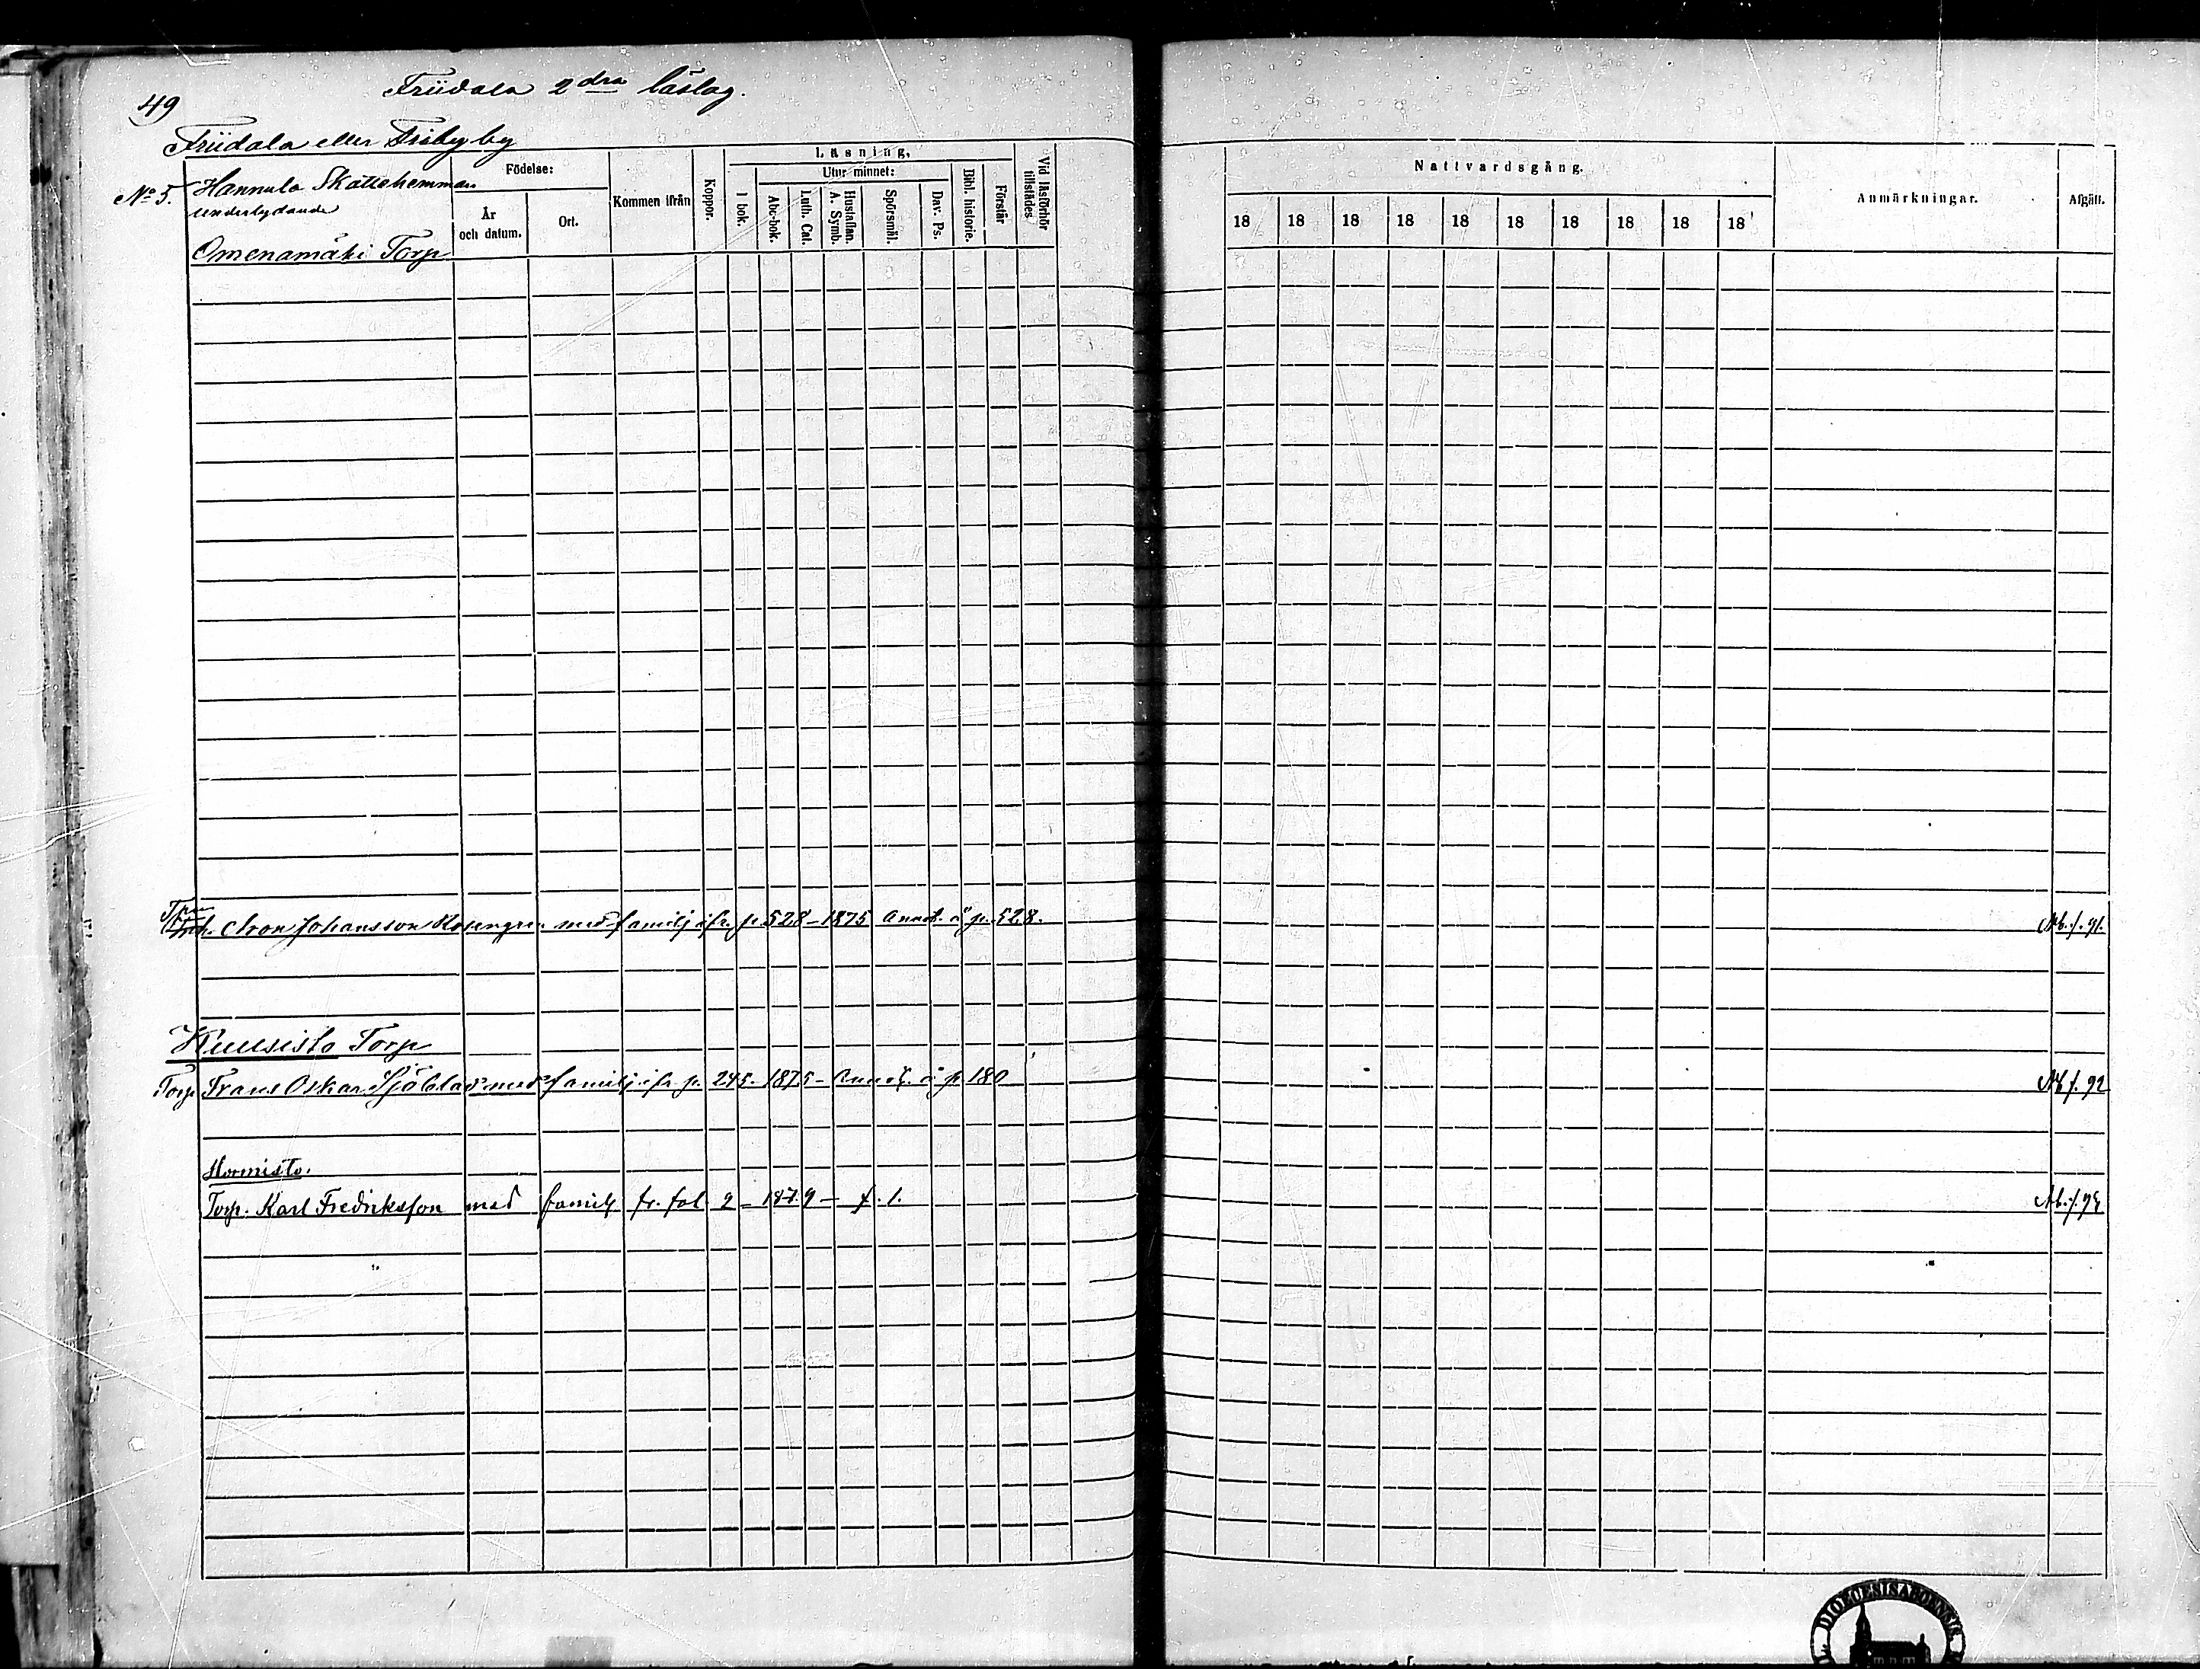 49
Friidala 2dra läslag.
Friidala eller Friby by
No 5. Hannula Skattehemman
underlydande
Omenamäki Torp
Födelse:
År och datum.
Ort.
Kommen ifrån
Koppor.
Läsning.
I bok.
Utur minnet:
Abc-bok.
Luth. Cat.
Hustaflan. A. Symb.
Spörsmål.
Dav. Ps.
Bibl. historie.
Förstår
Vid läsförhör tillstädes
Nattvardsgång.
18 18 18 18 18 18 18 18 18 18
Anmärkningar.
Afgått.
Johansson Rosengren med familj ifr. p. 528 – 1875 Annot. å p. 528. Ab. f. 91.
Kuusisto Torp
Torp. Frans Oskar Sjöblad med familj ifr p. 245. 1875 – Annot. å p 180 Ab f. 92
Hormisto.
Torp. Karl Fredriksson med familj fr. fol. 2 – 1879 – f. 1. Ab. f. 94
DIOECESIS ABOENSIS